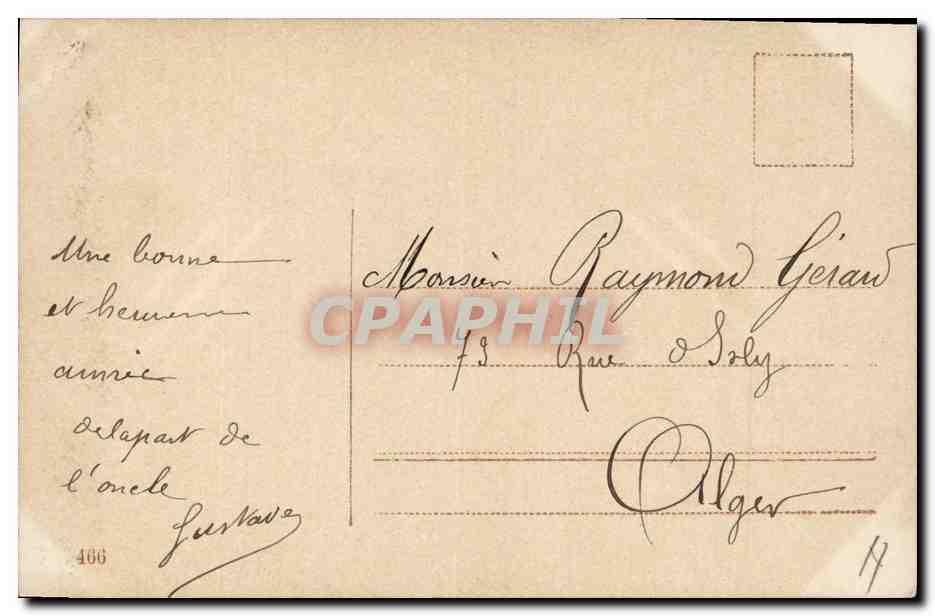 Une bonne
et heureuse
année
de la part de
l'oncle
Gustave
466
Monsieur Raymond Gérard
73 Rue d'Isly
Alger
CPAPHIL